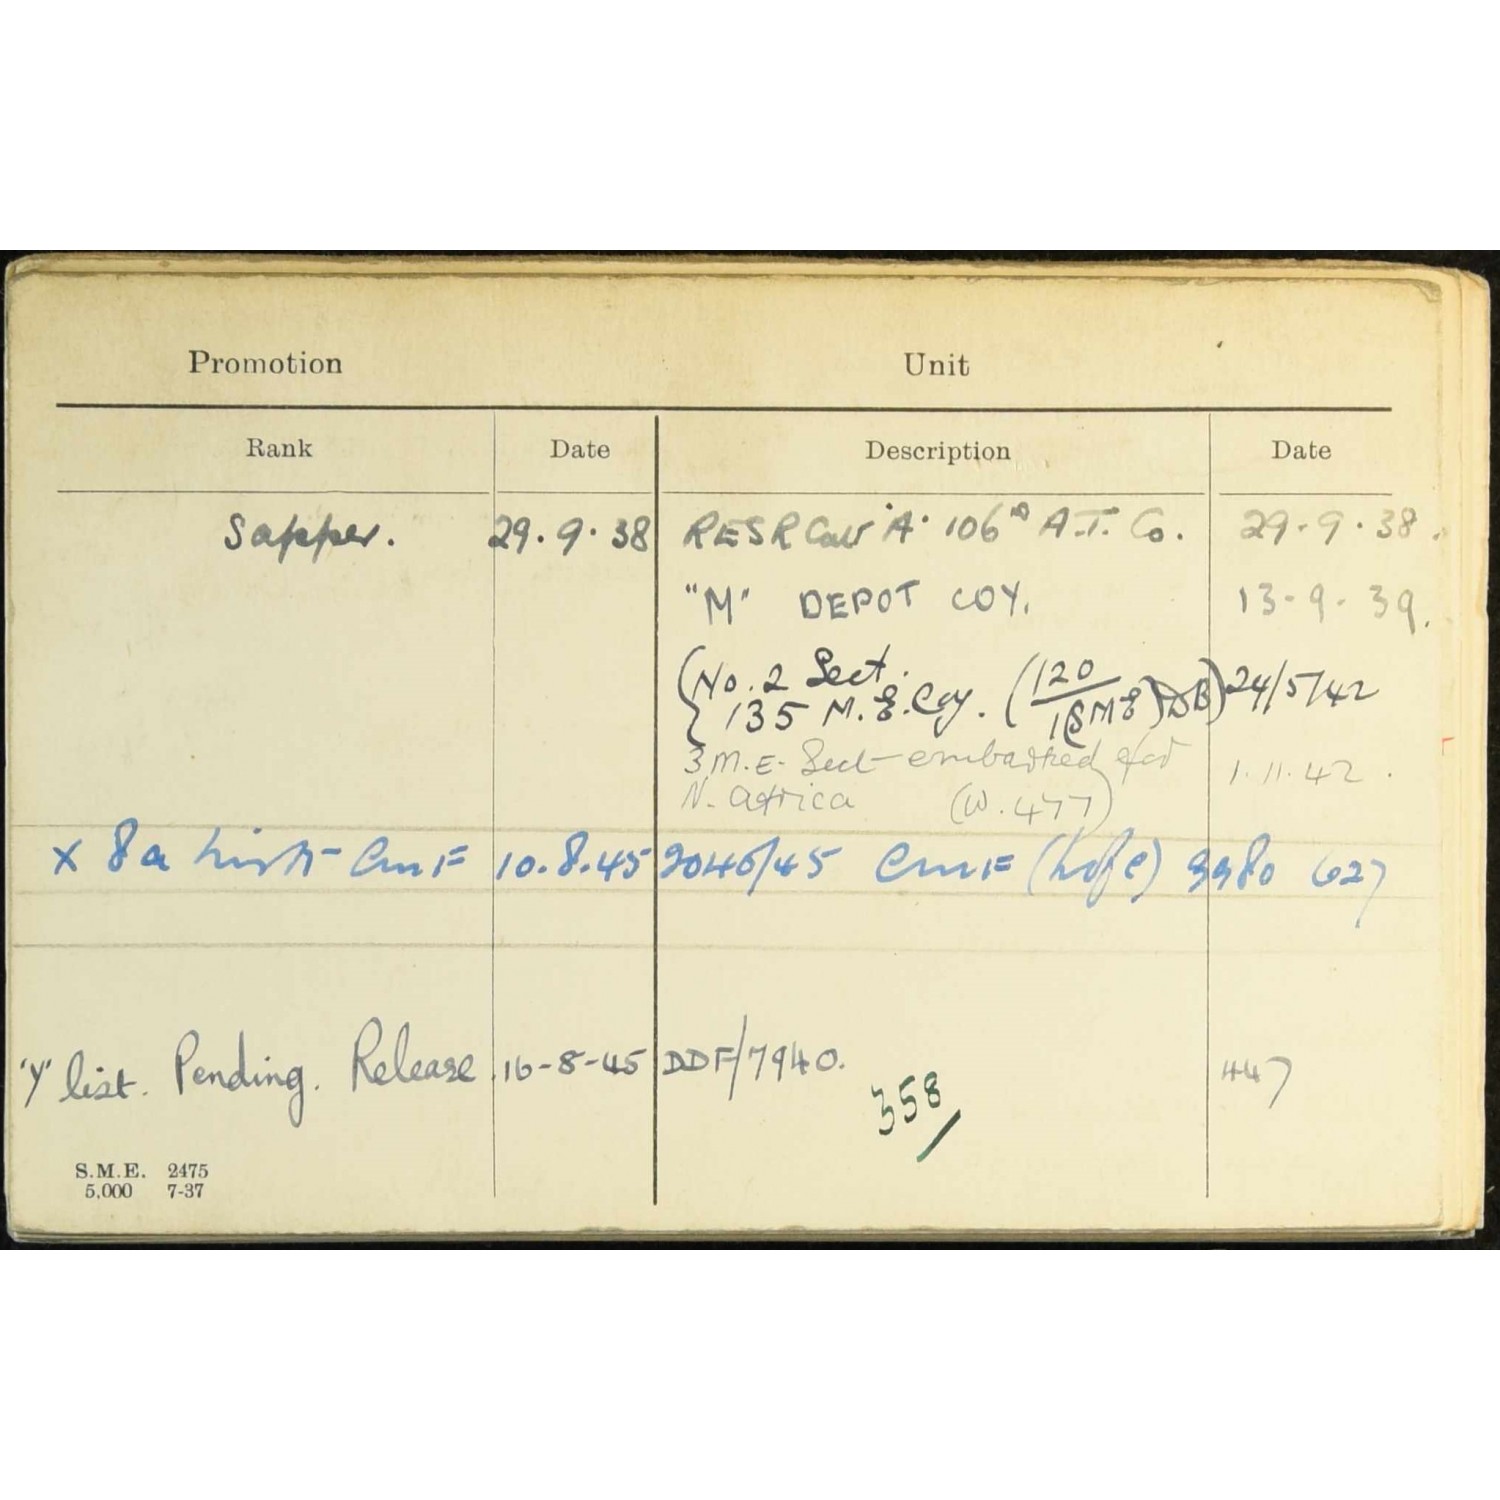 Promotion Unit
Rank Date Description Date
Sapper. 29.9.38 RESR "A" 106 A.T. Co. 29-9-38.
"M" DEPOT COY. 13-9-39.
(No. 2 Sect.
135 M.E. Coy. (120/1(SME)DB) 24/5/42
3 M.E. Sect embarked for 1.11.42.
N. Africa (W.477)
x 8a CMF 10.8.45 2046/45 CMF 9980 627
'Y' list. Pending. Release 16-8-45 DDF/7940. 447
358/
S.M.E. 2475
5,000 7-37